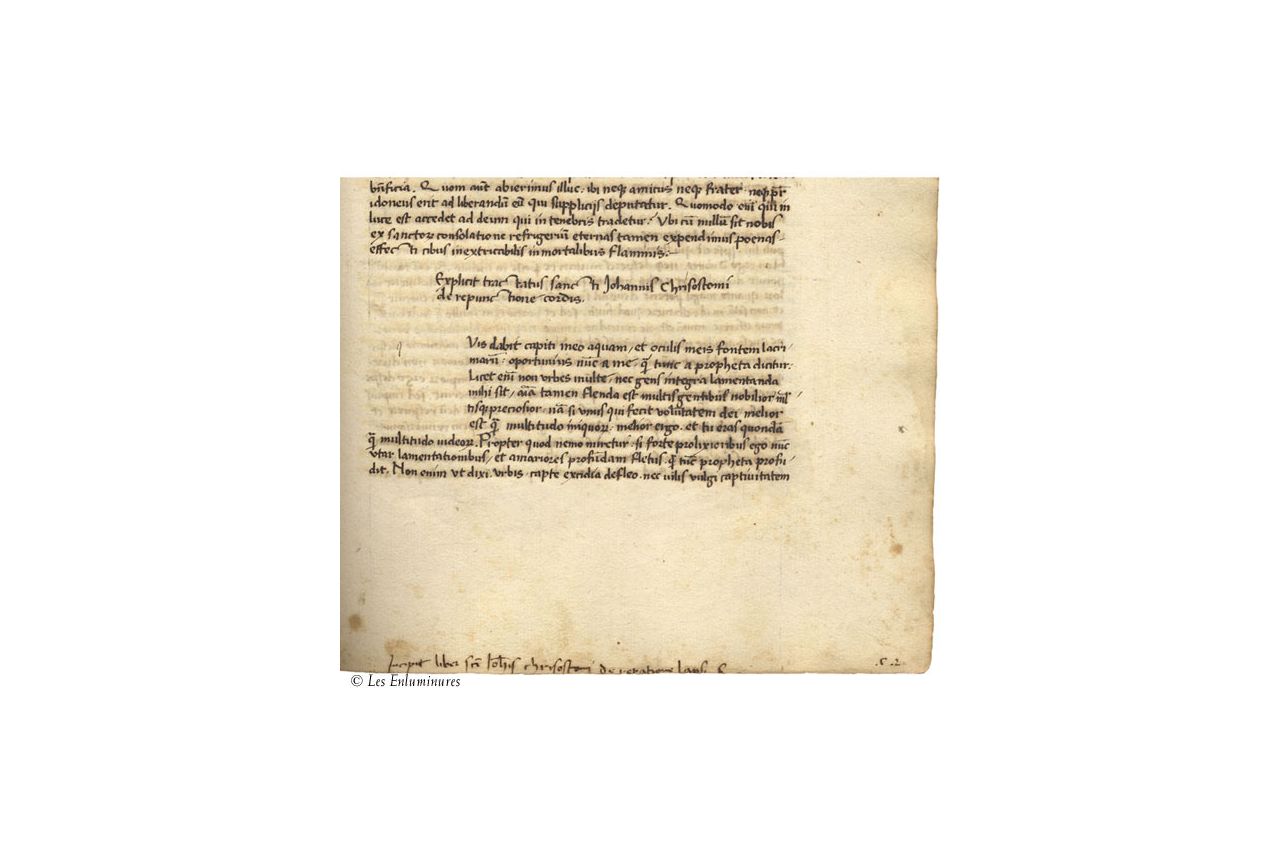 bn̄ficia. Quom aūt abierimus illuc. ibi neqꝫ amicus neqꝫ frater neqꝫ pr̄
idoneus erit ad liberandū eū qui supplicijs deputatur. Quomodo eni᷒ qui in
luce est accedet ad deum qui in tenebris tradetur. Vbi cū nullū sit nobis
ex sanctoꝝ consolatione refrigeriū eternas tamen expendimus poenas
effecti cibus inextricabilis inmortalibus flaminis:
Explicit tractatus sancti Johannis Chrisostomi
de repunctione cordis.
q
Vis dabit capiti meo aquam, et oculis meis fontem lacri
marū. oportunius nūc a me. q̄ tunc a propheta dicitur.
Licet enī non vrbes multe, nec gens integra lamentanda
mihi sit, aīa tamen flenda est multis gentibus nobilior ml̄
tisqꝫ preciosior. nā si vnus qui fecit volūtatem dei melior
est q̄ multitudo iniquoꝝ. melior ergo. et tu eras quondā
q̄ multitudo iudeoꝝ. Propter quod nemo miretur. si forte prolixioribus ego nūc
vtar lamentationibus, et amariores profūdam fletus. q̄ tūc propheta profu
dit. Non enim vt dixi. vrbis. capte excidia defleo. nec uilis vulgi captiuitatem
Jncipit liber sc̄i Joh̄is chrisostomi de lapsi
.c.2.
© Les Enluminures